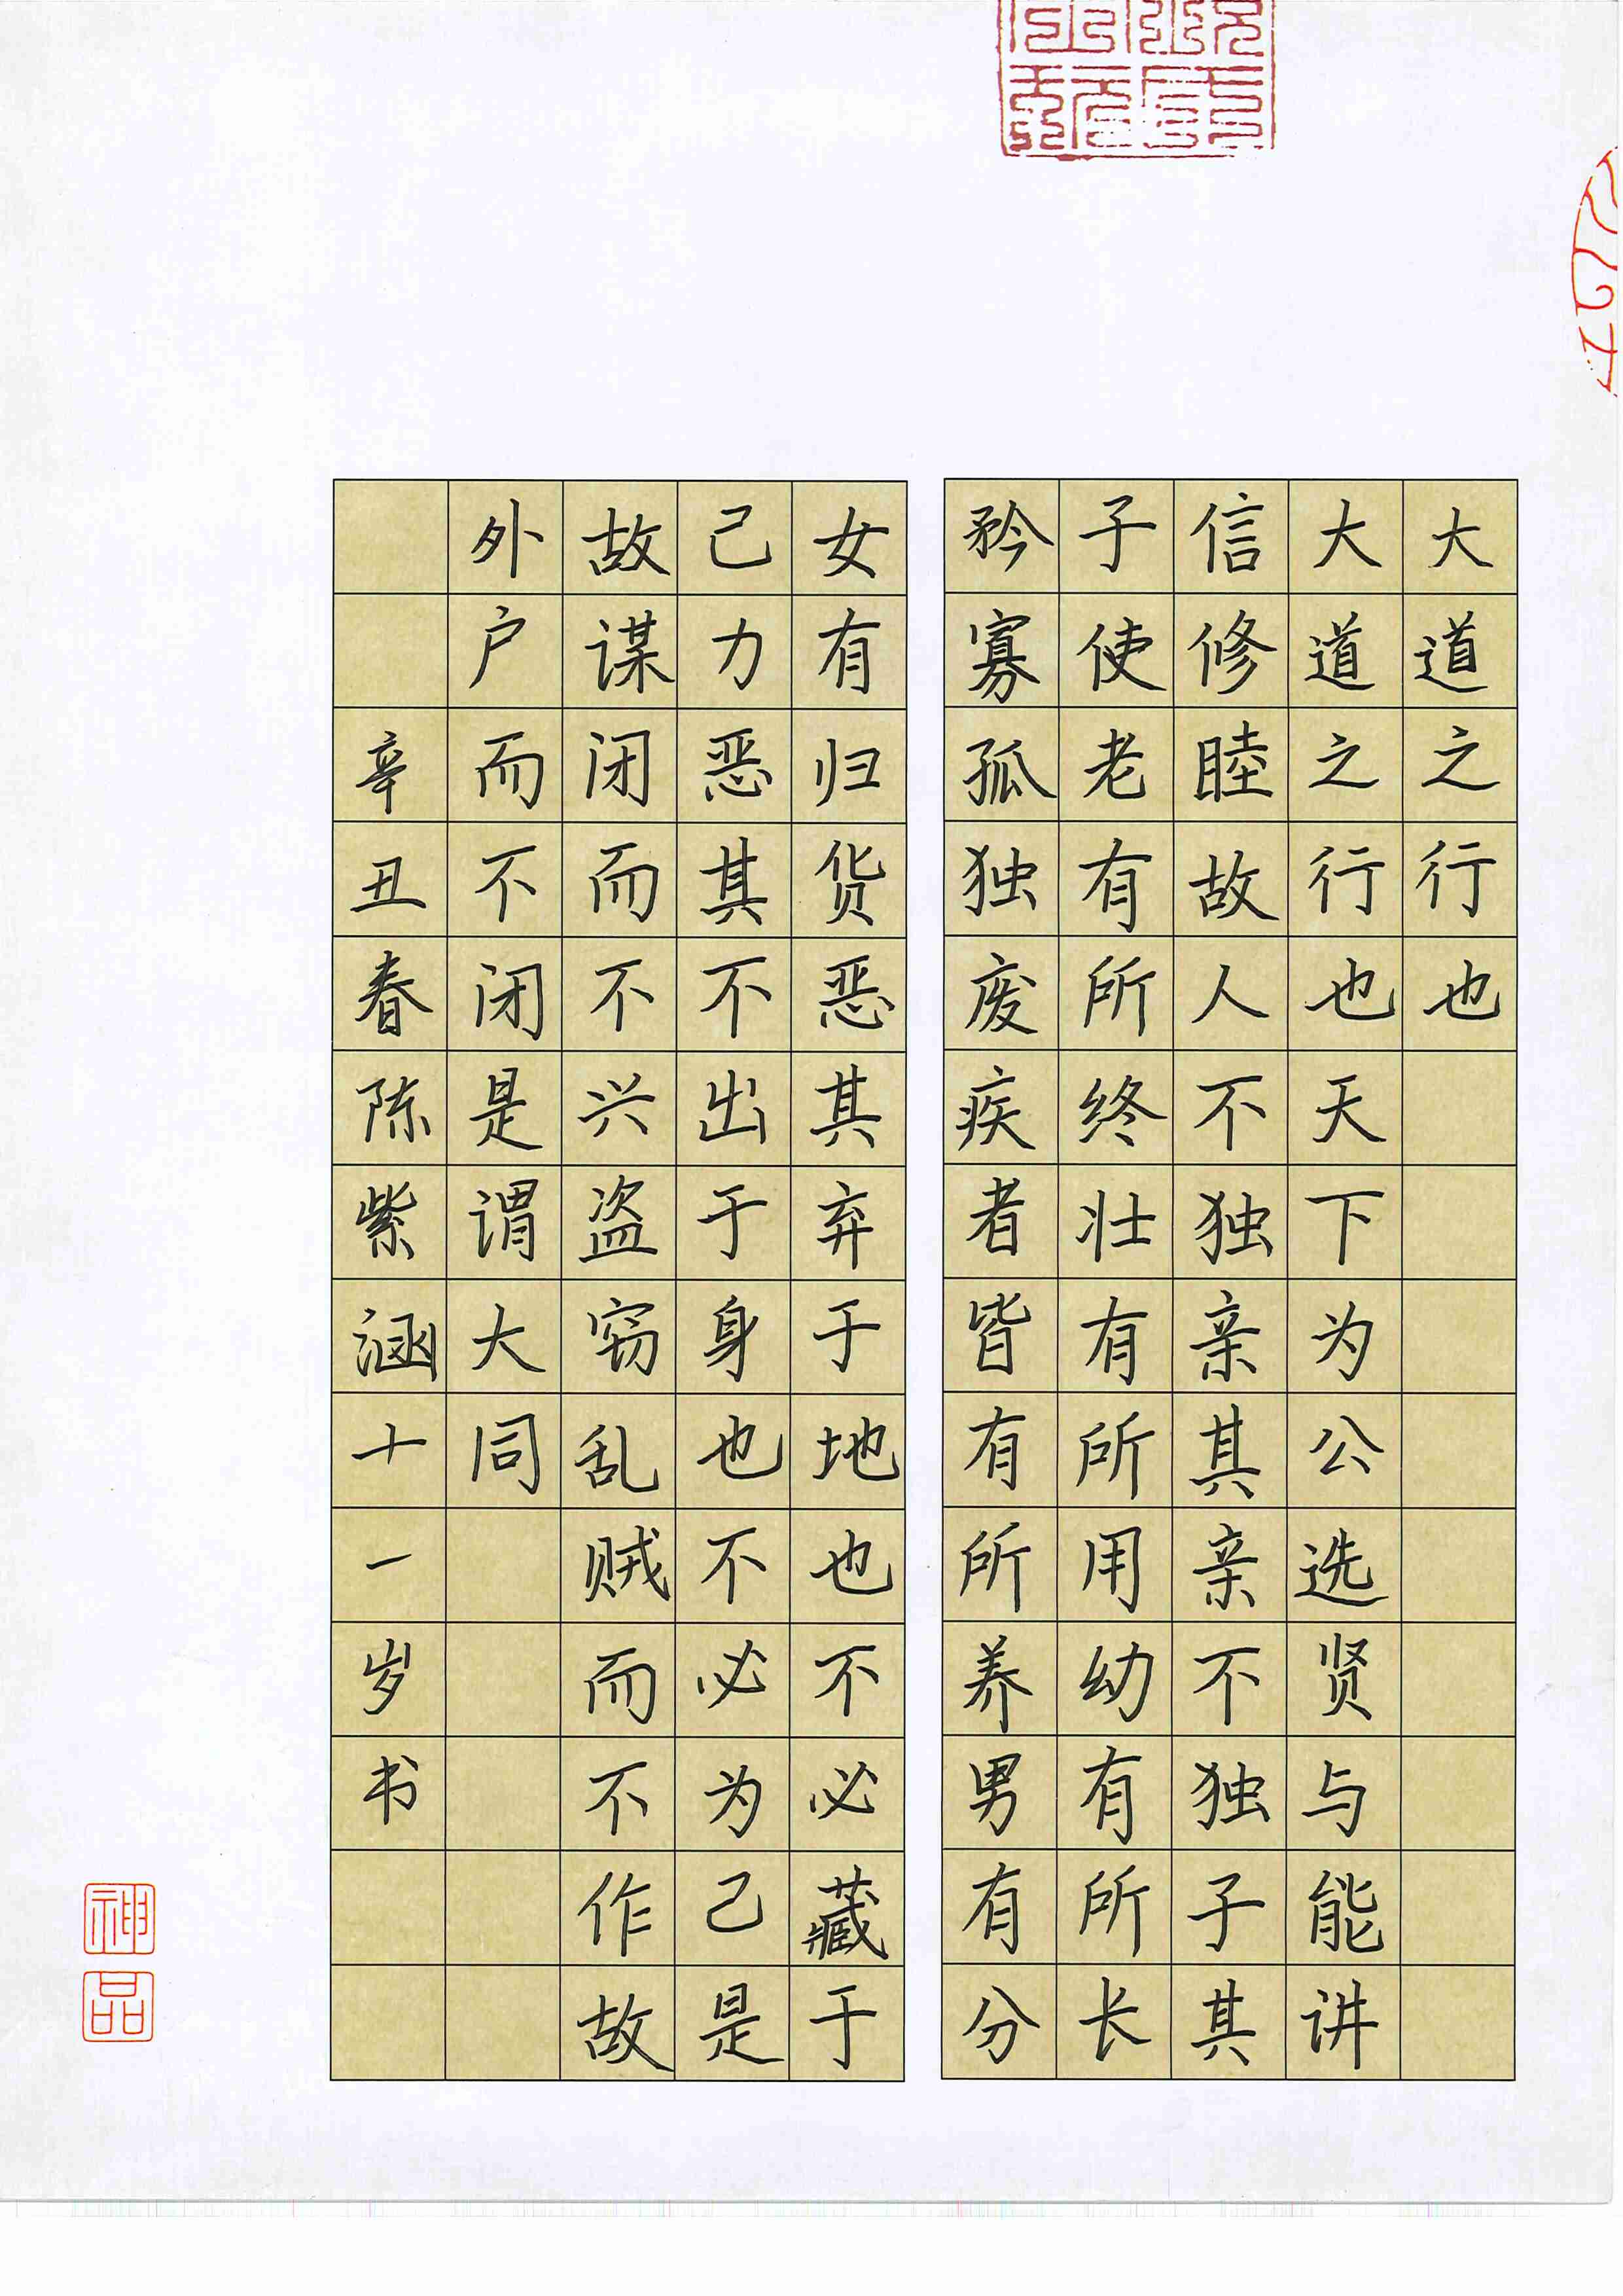 大道之行也
大道之行也天下为公选贤与能讲
信修睦故人不独亲其亲不独子其
子使老有所终壮有所用幼有所长
矜寡孤独废疾者皆有所养男有分
女有归货恶其弃于地也不必藏于
己力恶其不出于身也不必为己是
故谋闭而不兴盗窃乱贼而不作故
外户而不闭是谓大同
辛丑春陈紫涵十一岁书
神品